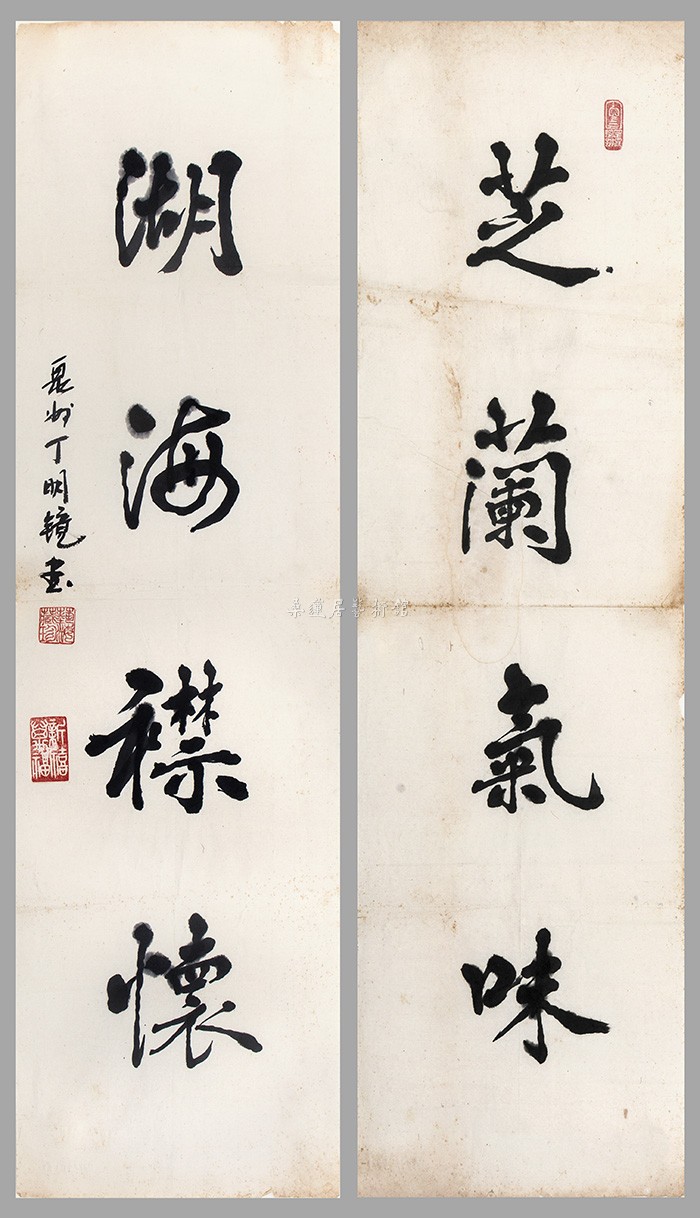 芝蘭氣味
湖海襟懷
泉州丁明鏡書
桑蓮居藝術館